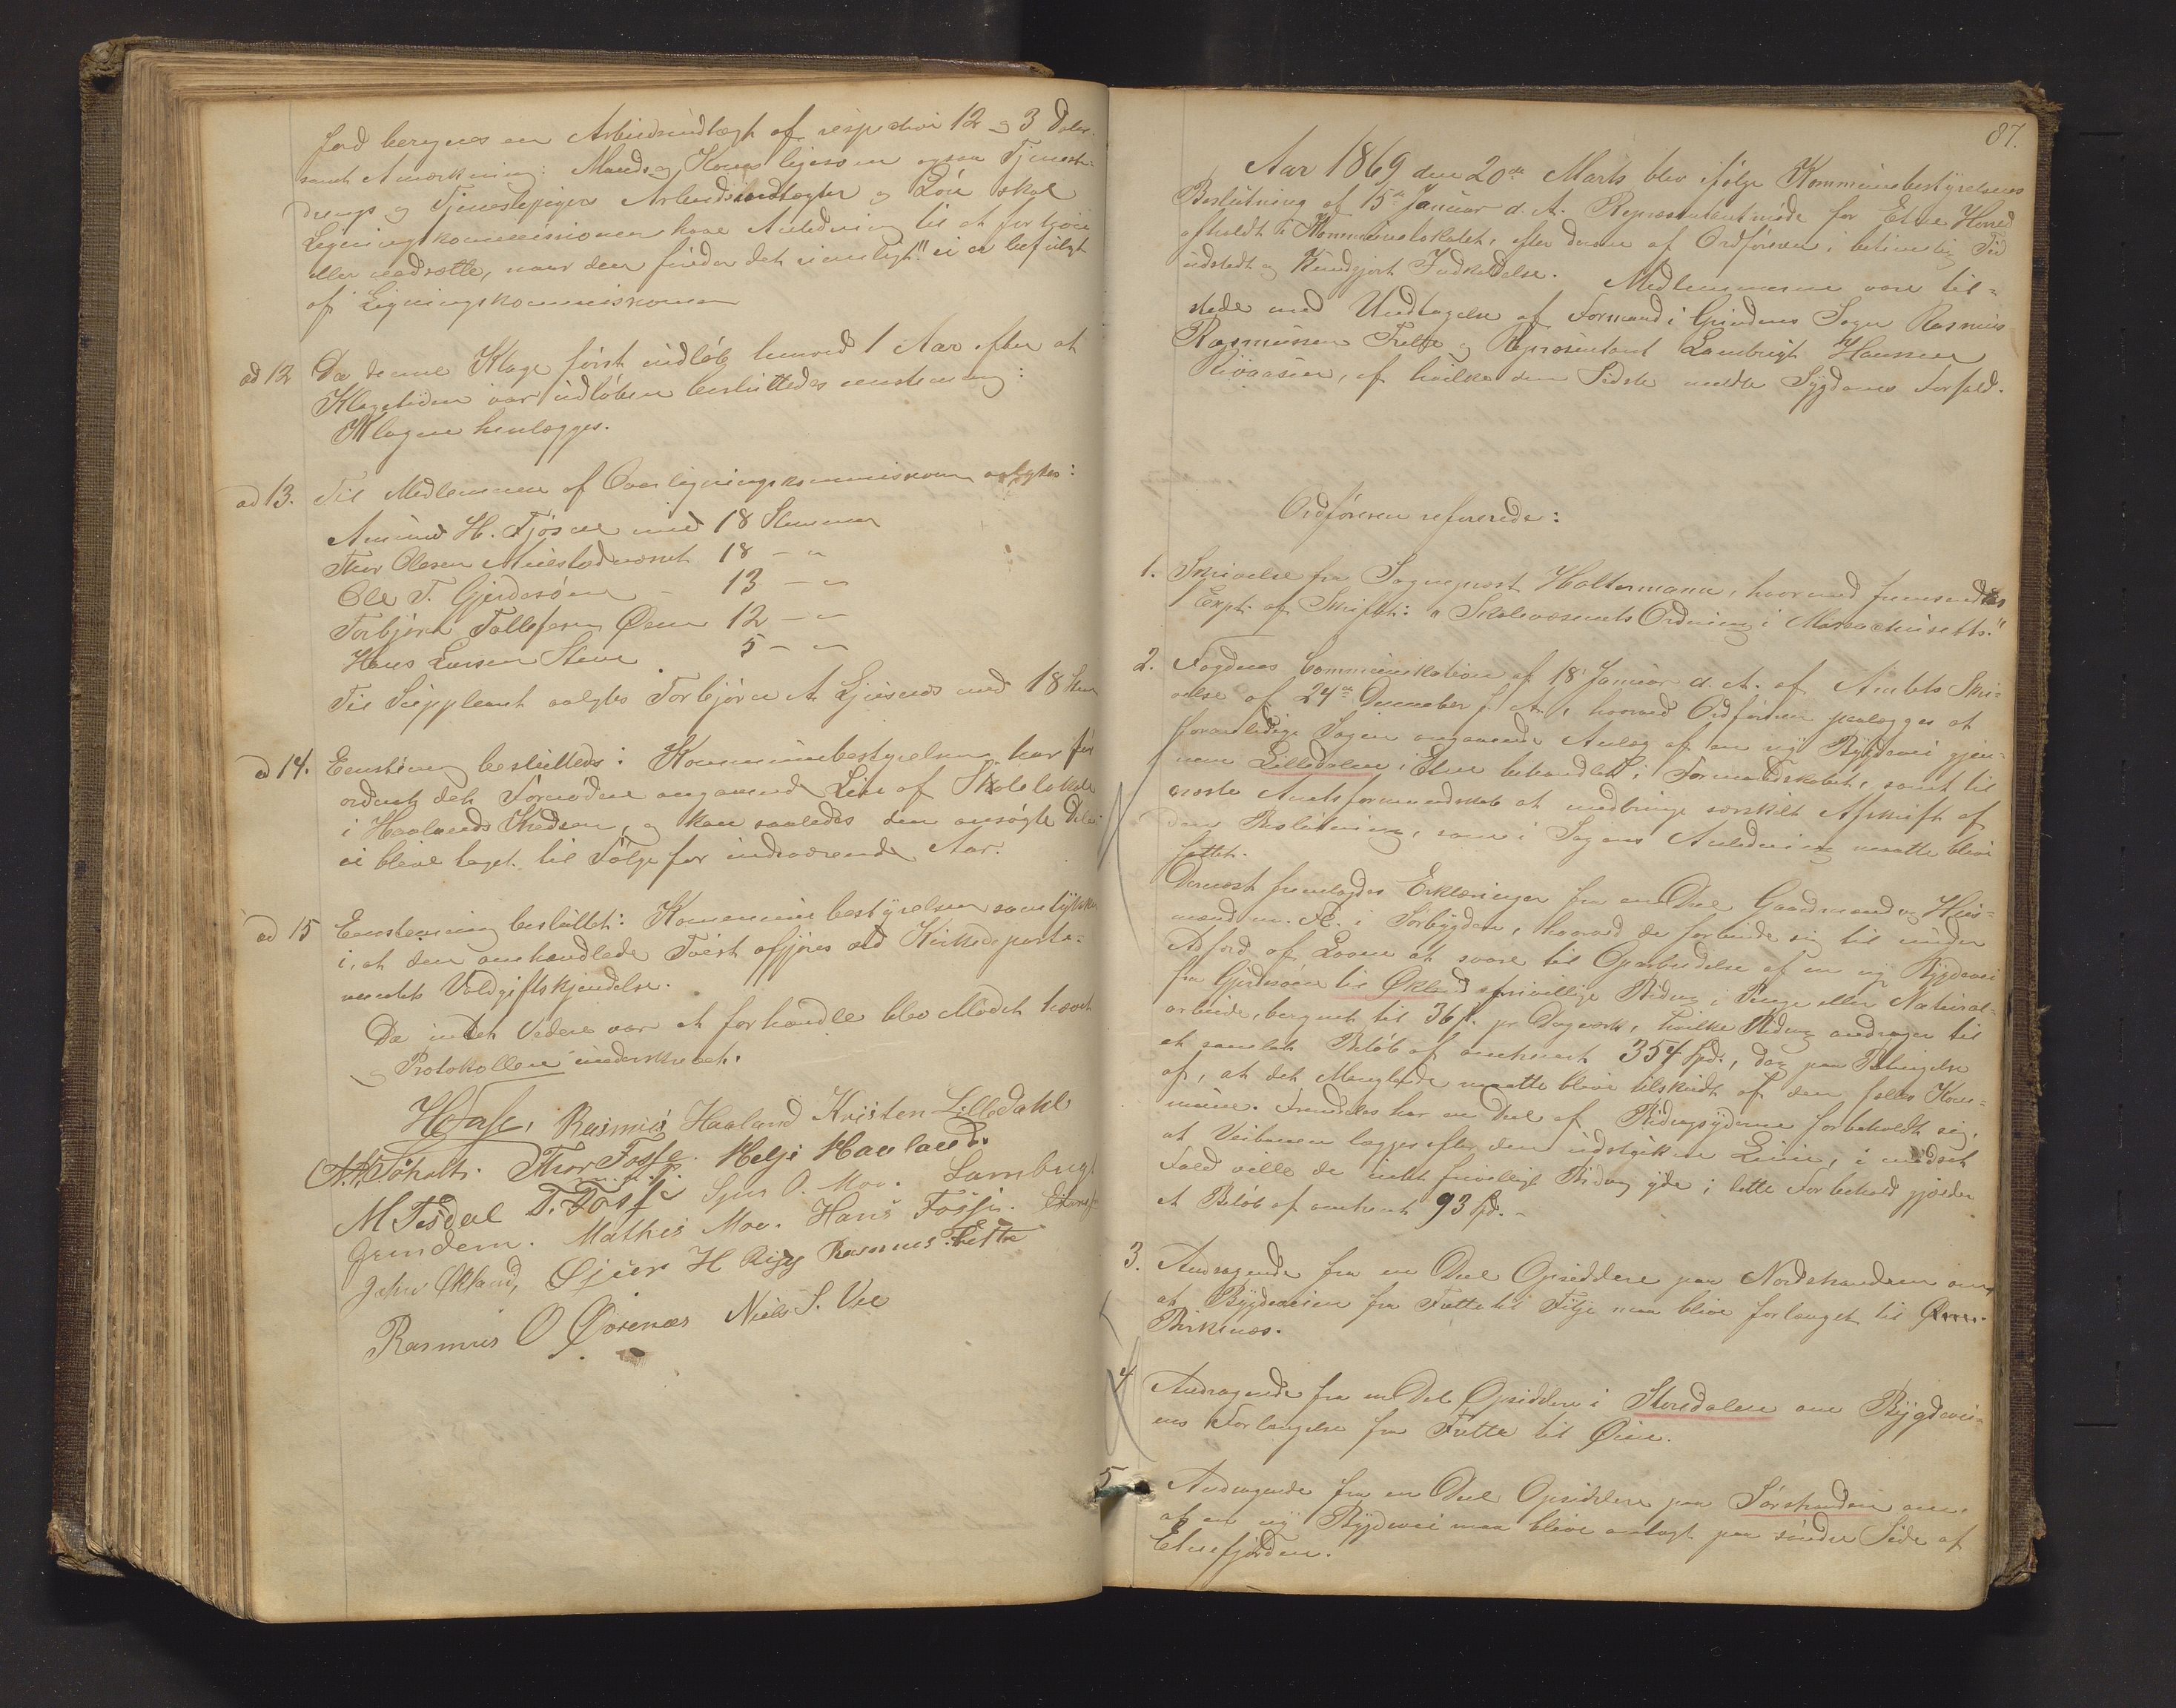 ford beregnes en Arbeidsindtægt af respective 12 og 3 Daler
samt Anmærkning: Mænds og Koners ligesom ogsaa Tjeneste-
drenges og Tjenestepigers Arbeidsindtægter og Løn skal
Ligningskommissionen have Anledning til at forhøie
eller nedsætte, naar den finder det rimeligt" ei er befulgt
af Ligningskommissionen
ad 12 Da denne Klage først indløb henved 1 Aar efter at
Klagetiden var udløben besluttedes eenstemmig:
Klagen henlægges.
ad 13. Til Medlemmer af Overligningskommissionen valgtes:
Amund H. Fjøsne med 18 Stemmer
Thor Olesen Milestadnæset 18 — "
Ole T. Gjerdesøen - 13 — "
Torbjørn Tollefsen Øien 12 — "
Hans Larsen Stene 5 — "
Til Suppleant valgtes Torbjørn A. Ljusnes med 18 Stem
ad 14. Eenstemmig besluttedes: Kommunebestyrelsen har for
ordnet det Fornødne angaaende Leie af Skolelokale
i Haalands Kredsen, og kan saaledes den ansøgte Deling
ei blive taget til Følge for indeværende Aar.
ad 15 Eenstemmig besluttet: Kommunebestyrelsen samtykker
i, at den omhandlede Tvist afgjøres ved Kirkedeparte-
mentets Voldgiftskjendelse.
Da intet Videre var at forhandle blev Mødet hævet
og Protokollen underskrevet.
H Fase, Rasmus Haaland Kristen Lilledahl
A. A. Sørhalti. Thor Fosse. Helje Haaland.
M Tesdal T. Fosse Sjur O. Moe. Lambregt
Grindem. Mathis Moe. Hans Fosse.
John Økland, Sjur H Rygg Rasmus Frette
Rasmus O Øvrenæs Niels S. Vee
87.
Aar 1869 den 20de Marts blev ifølge Kommunebestyrelsens
Beslutning af 15de Januar d. A. Representantmøde for Etne Herred
afholdt i Kommunelokalet, efter derom af Ordføreren i betimelig Tid
udstedt og kundgjort Indkaldelse. Medlemmerne vare til-
stede med Undtagelse af Formand i Grindens Sogn Rasmus
Rasmussen Frette og Representant Lambregt Hansen
Silvaasen, af hvilke den Sidste meldte Sygdoms Forfald.
Ordføreren refererede:
1. Skrivelse fra Sognepræst Haltermann, hvormed fremsendtes
1 Expl. af Skriftet: "Skolevæsenets Ordning i Massachusetts."
2. Fogdens Communikation af 18 Januar d. A. af Amtets Skri-
velse af 24de December f. A., hvorved Ordføreren paalægges at
foranledige Sagen angaaende Anlæg af en ny Bygdevei gjen-
nem Lilledalen i Etne behandlet i Formandskabet, samt til
næste Amtsformandskab at medbringe særskilt Afskrift af
den Beslutning, som i Sagens Anledning maatte blive
fattet.
Dernæst fremlagdes Erklæringer fra en Deel Gaardmænd og Huus-
mænd m. Fl. i Sørbygden, hvorved de forbinde sig til under
Adfærd af Loven at svare til Oparbeidelse af en ny Bygdevei
fra Gjerdesøen til Økland frivillige Bidrag i Penge eller Natural-
arbeide, beregnet til 36 ß. pr Dagværk, hvilke Bidrag andrager til
et samlet Beløb af omtrent 354 Spd., dog paa Betingelse
af, at det Manglende maatte blive tilskudt af den fælles Kom-
mune. Fremdeles har en Deel af Bidragsyderne forbeholdt sig,
at Veibanen lægges efter den udstukne Linie, i modsat
Fald ville de intet frivilligt Bidrag yde; dette Forbehold gjælder
et Beløb af omtrent 93 Spd. -
3. Andragende fra en Deel Opsiddere paa Nordstranden om,
at Bygdeveien fra Tutte til Silje maa blive forlænget til
Birkenæs.
4 Andragende fra en Del Opsiddere i Stordalen om Bygdevei-
ens Forlængelse fra Tutte til Øine.
5 Andragende fra en Deel Opsiddere paa Sørstranden om,
at en ny Bygdevei maa blive anlagt paa søndre Side af
Etnefjorden.